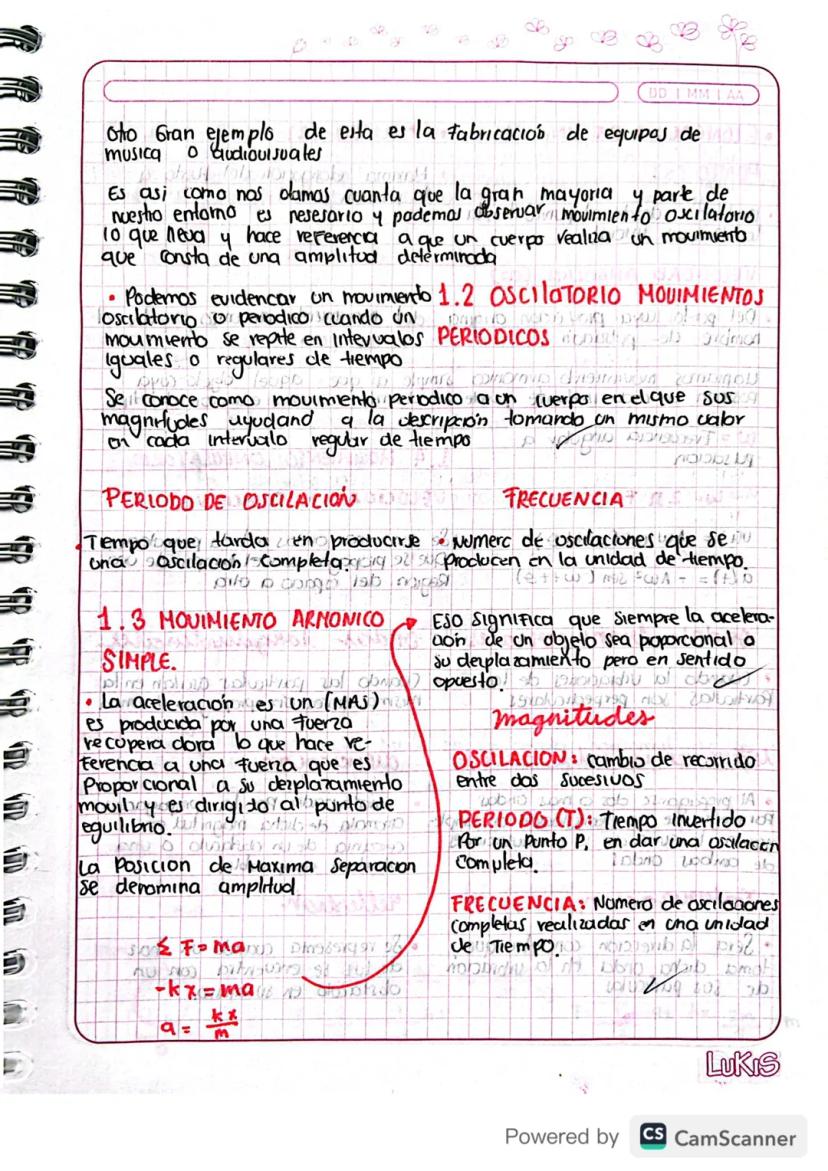 DD | MM | AA
Otro Gran ejemplo de esta es la Fabricación de equipos de
musica o audiovisuales
Es asi como nos damos cuanta que la gran mayoria y parte de
nuestro entorno es nesesario y podemos observar movimiento oscilatorio
lo que lleva y hace referencia a que un cuerpo realiza un movimiento
que consta de una amplitud determinada
• Podemos evidencar un movimiento
oscilatorio o periodico cuando un
movimiento se repite en intervalos
iguales o regulares de tiempo
1.2 OSCILATORIO MOVIMIENTOS
PERIODICOS
Se conoce como movimiento periodico a un cuerpo en el que sus
magnitudes ayudand a la descripción tomando un mismo valor
en cada intervalo regular de tiempo
PERIODO DE OSCILACIÓN
• Tiempo que tarda en producirse
una oscilación completa.
FRECUENCIA
• Numero de oscilaciones que se
producen en la unidad de tiempo.
1.3 MOVIMIENTO ARMONICO
SIMPLE.
• La aceleración es un (MAS)
es producida por una fuerza
recuperadora lo que hace re-
ferencia a una fuerza que es
Proporcional a su dezplazamiento
movil y es dirigido al punto de
eguilibrio.
La Posicion de Maxima separacion
se denomina amplitud
Σ F = ma
-kx = ma
a = kx/m
Eso significa que siempre la acelera-
ción de un objeto sea poporcional a
su desplazamiento pero en sentido
opuesto.
magnitudes
OSCILACION: cambio de recorrido
entre dos sucesivos
PERIODO (T): Tiempo invertido
Por un Punto P, en dar una oscilación
completa.
FRECUENCIA: Numero de oscilaciones
completas realizadas en una unidad
de Tiempo.
LUKIS
Powered by CS CamScanner